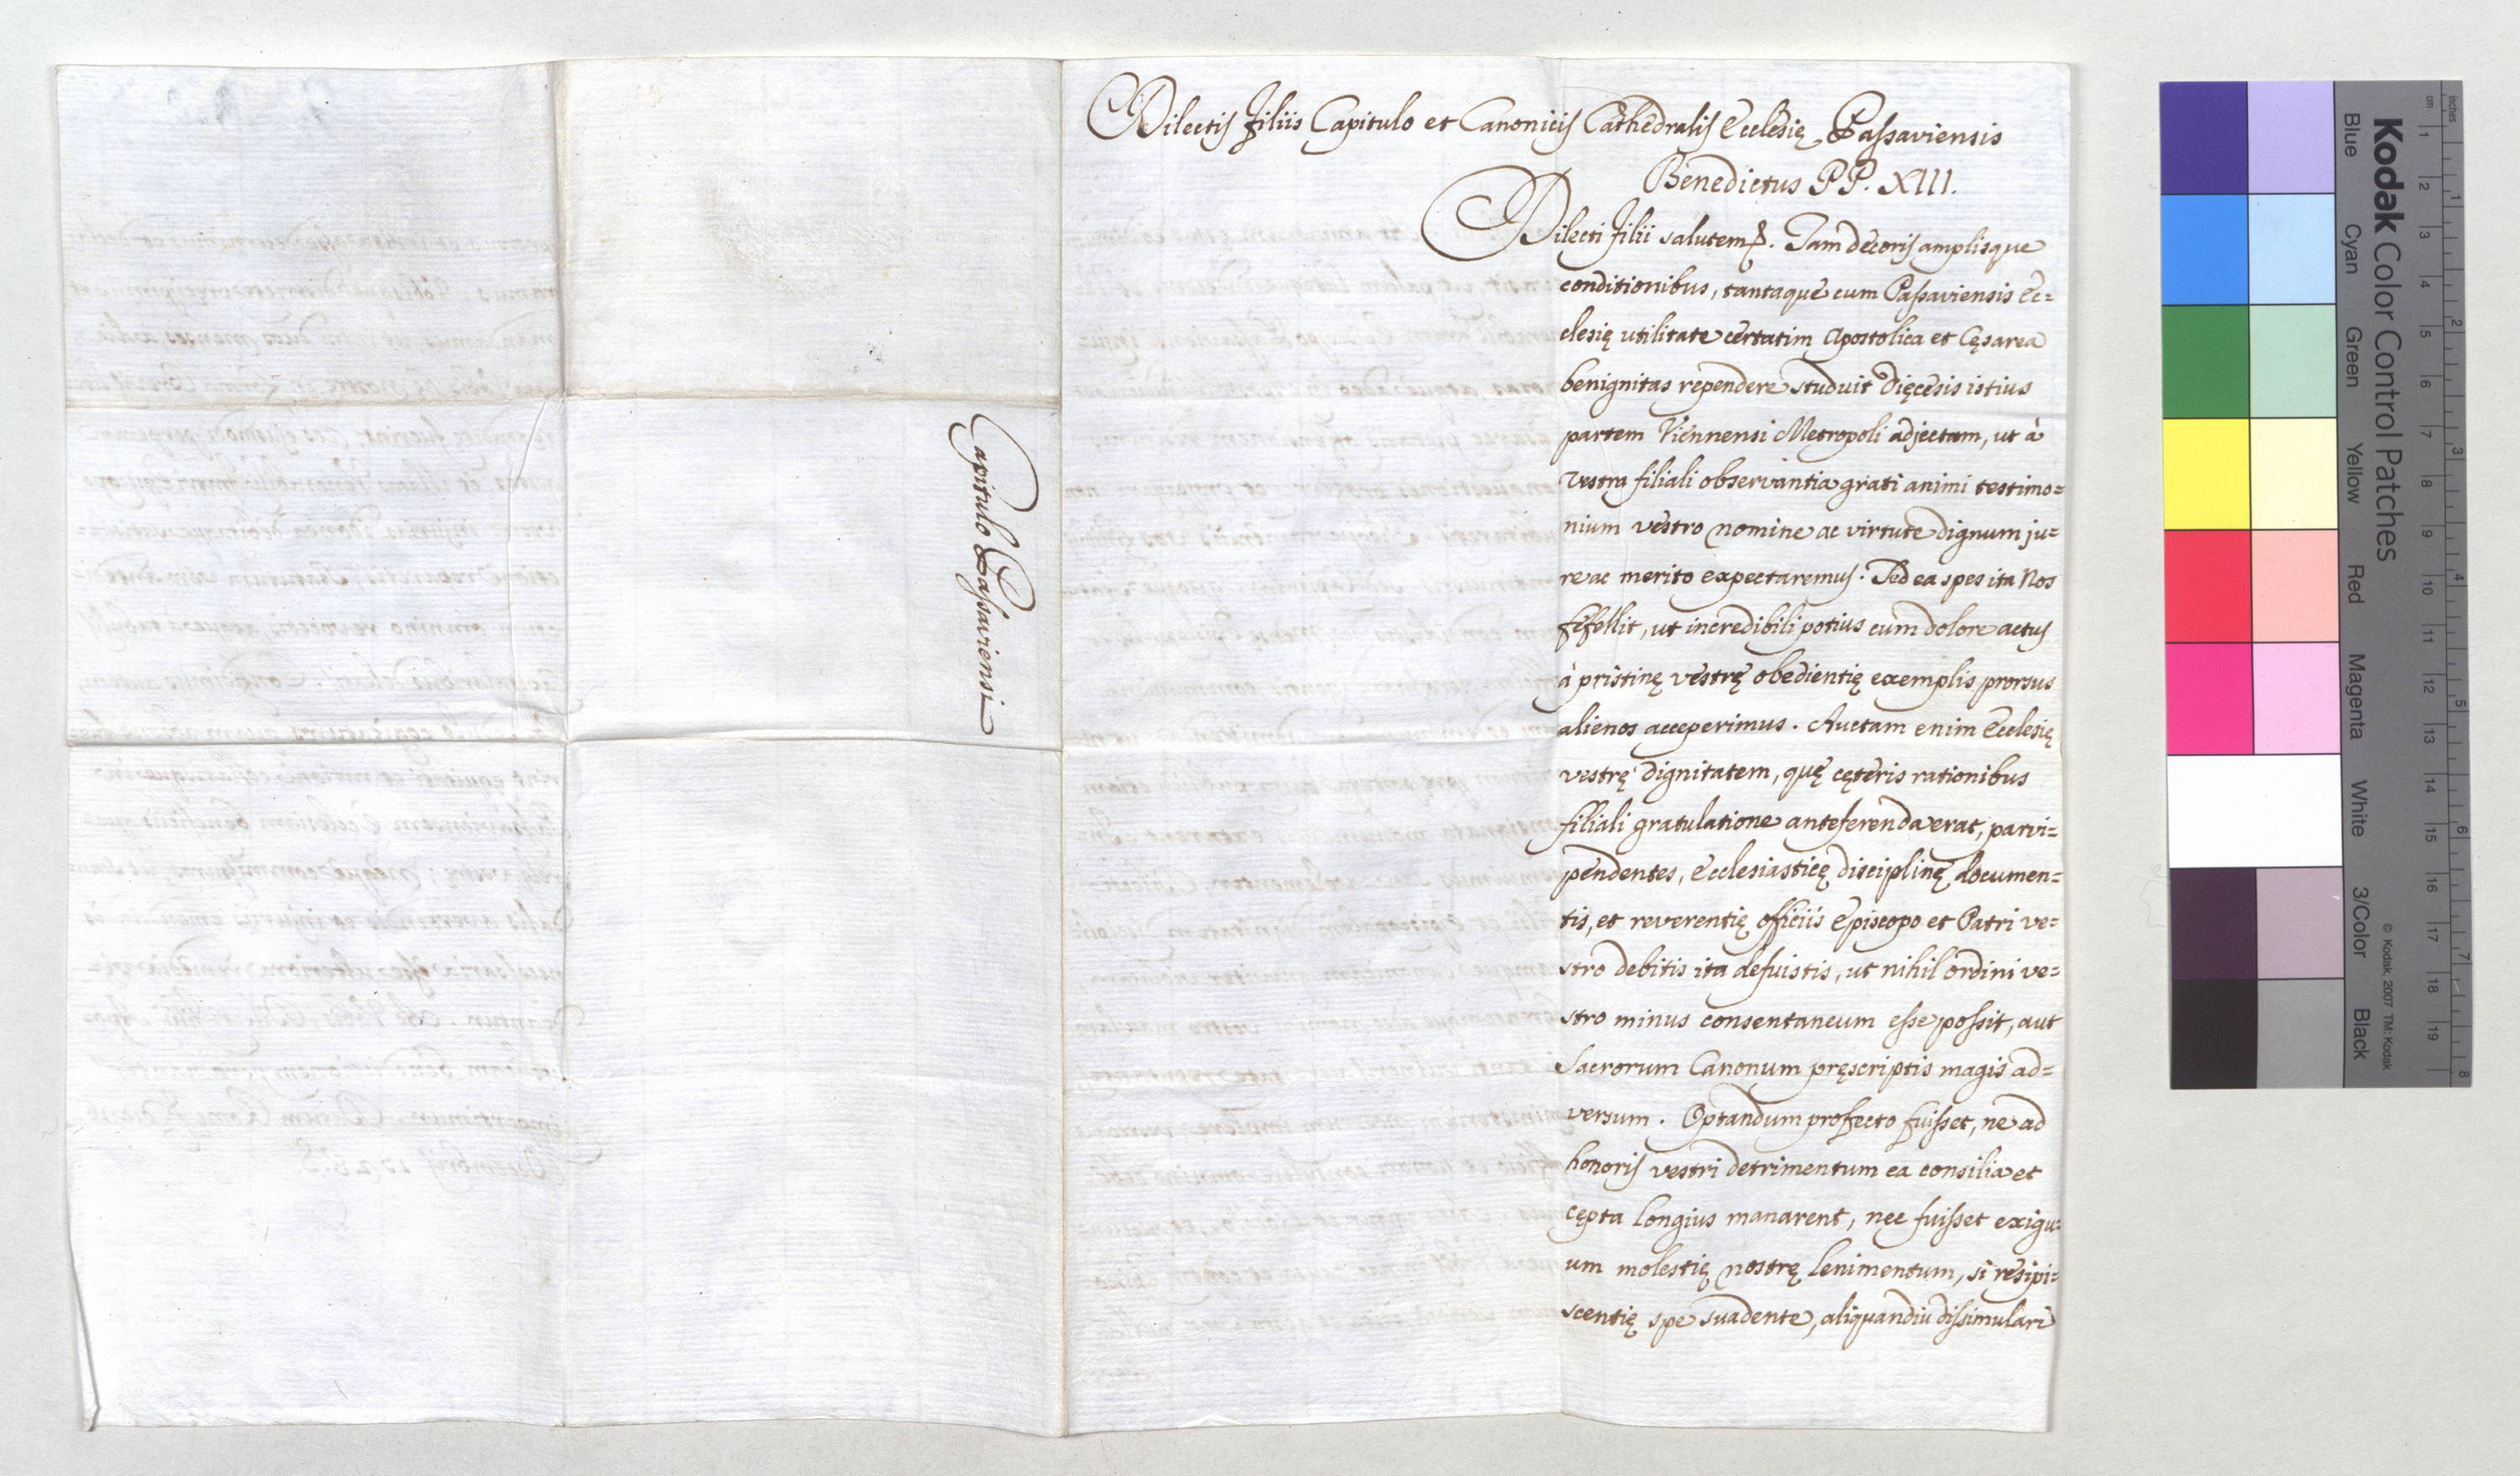 Dilectis filiis Capitulo et Canonicis Cathedralis Ecclesię Passaviensis
Benedictus PP. XIII.
Dilecti filii salutem &. Tam decoris amplisque
conditionibus, tantaque cum Passaviensis Ec=
clesię utilitate certatim Apostolica et Cęsarea
benignitas rependere studuit Dięcesis istius
partem Viennensi Metropoli adjectam, ut à
vestra filiali observantia grati animi testimo=
nium vestro nomine ac virtute dignum ju=
re ac merito expectaremus. Sed ea spes ita Nos
fefellit, ut incredibili potius cum dolore actus
à pristinę vestrę obedientię exemplis prorsus
alienos acceperimus. Auctam enim Ecclesię
vestrę dignitatem, quę cęteris rationibus
filiali gratulatione anteferenda erat, parvi=
pendentes, Ecclesiasticę disciplinę documen=
tis, et reverentię officiis Episcopo et Patri ve=
stro debitis ita defuistis, ut nihil ordini ve=
stro minus consentaneum esse possit, aut
Sacrorum Canonum pręscriptis magis ad=
versum. Optandum profecto fuisset, ne ad
honoris vestri detrimentum ea consilia et
cępta longius manarent, nec fuisset exigu=
um molestię nostrę lenimentum, si resipi=
scentię spe suadente, aliquandiu dissimulari
Capitulo Passaviensi
Kodak Color Control Patches
© Kodak, 2007 TM: Kodak
Blue Cyan Green Yellow Red Magenta White 3/Color Black
inches 1 2 3 4 5 6 7 8
cm 1 2 3 4 5 6 7 8 9 10 11 12 13 14 15 16 17 18 19